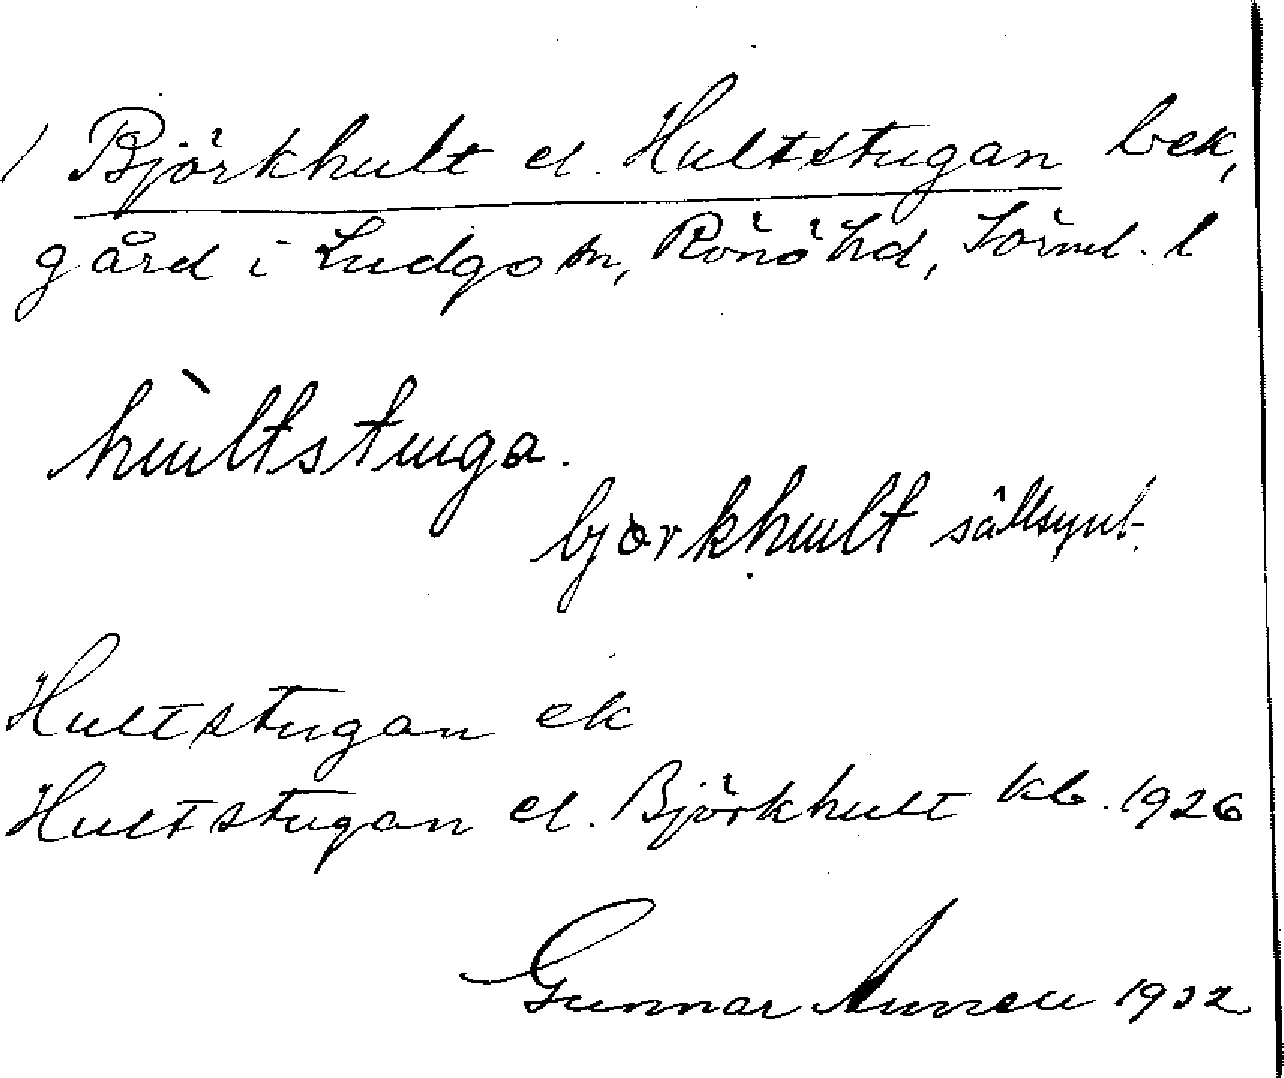 / Björkhult el. Hultstugan bek,
gård i Ludgo sn, Rönö hd, Sörml. l
hùltstuga.
bjòrkhult sällsynt.
Hultstugan ek
Hultstugan el. Björkhult kb. 1926
Gunnar 1932